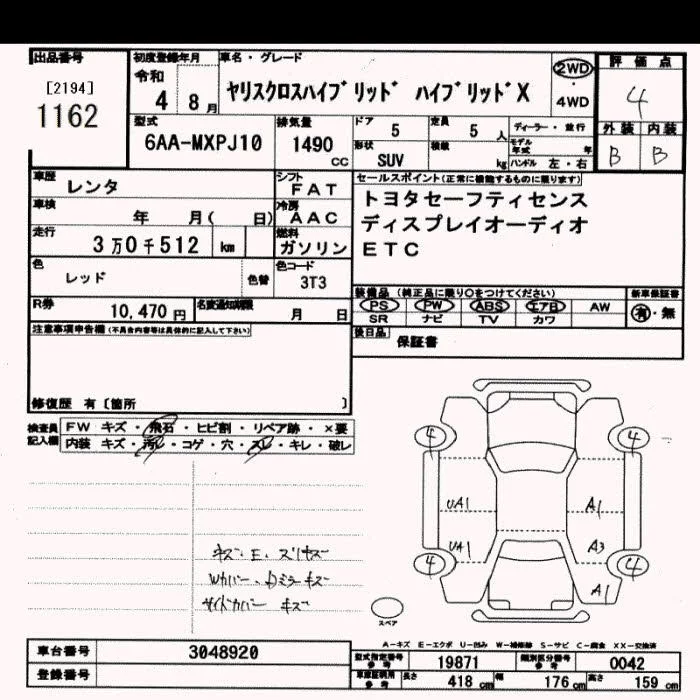 出品番号
[2194]
1162
初度登録年月
令和
4 8月
車名・グレード
ヤリスクロスハイブリッド ハイブリッドX
2WD
・
4WD
評価点
4
外装 内装
B B
型式
6AA-MXPJ10
排気量
1490
CC
ドア
5
定員
5人
形状
SUV
積載
kg
ディーラー・並行
モデル年式 年
ハンドル 左・右
車歴
レンタ
シフト
FAT
車検
年 月( 日)
冷房
AAC
走行
3万0千512 km
燃料
ガソリン
色
レッド
色替
色コード
3T3
R券
10,470円
名変通知期限
月 日
セールスポイント(正常に機能するものに限ります)
トヨタセーフティセンス
ディスプレイオーディオ
ETC
装備品 (純正品に限り○をつけてください)
PS PW ABS エアB AW
SR ナビ TV カワ
新車保証書
有・無
後日品
保証書
注意事項申告欄(不具合内容等は具体的に記入して下さい)
修復歴 有〔箇所 〕
検査員記入欄
FW キズ・飛石・ヒビ割・リペア跡・×要
内装 キズ・汚レ・コゲ・穴・スレ・キレ・破レ
キズ・E・スリキズ
Wカバー・Dミラーキズ
サイドカバー キズ
4 4
UA1 A1
UA1 A3
4 4
A1
スペア
A-キズ E-エクボ U-凹み W-補修跡 S-サビ C-腐食 XX-交換済
車台番号
3048920
登録番号
型式指定番号
参考
19871
類別区分番号
参考
0042
車庫証明用
参考
長さ 418cm 幅 176cm 高さ 159cm